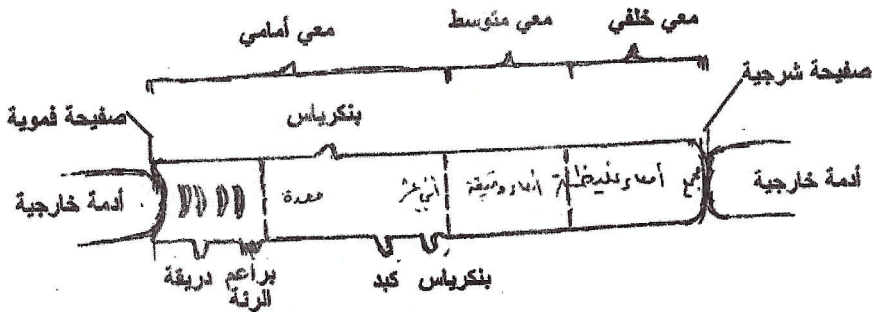 معي أمامي
معي متوسط
معي خلفي
صفيحة شرجية
صفيحة فموية
بنكرياس
أدمة خارجية
معدة
أثني عشر
أمعاء دقيقة
أمعاء غليظة
مجمع
أدمة خارجية
دريقة
براعم الرئة
كبد
بنكرياس